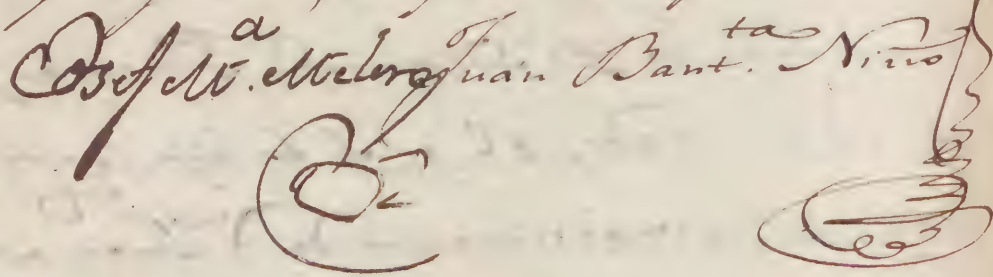 Josef M.ª Melero Juan Baut.ta Nino